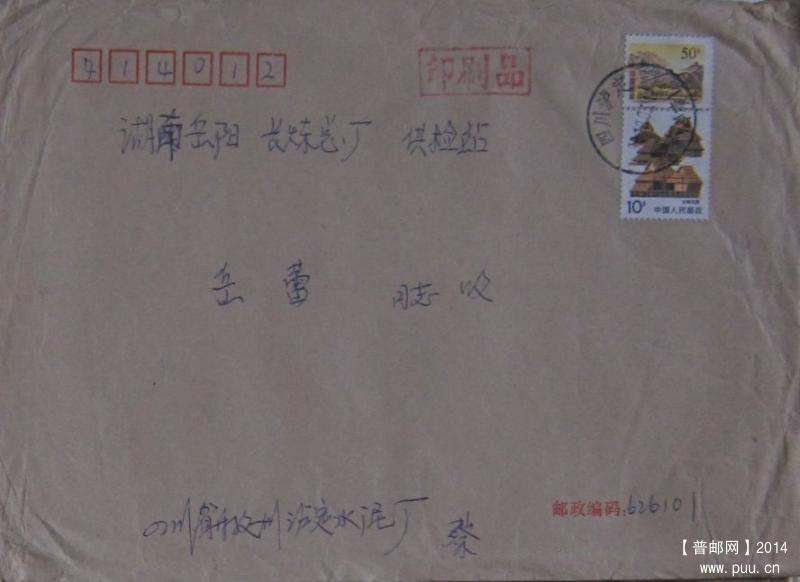 414012
印刷品
50分
四川泸定
湖南岳阳 长炼总厂 供检站
10分
中国人民邮政
岳 蕾 同志 收
邮政编码:626101
四川省甘孜州泸定水泥厂 蔡
【普邮网】2014
www.puu.cn